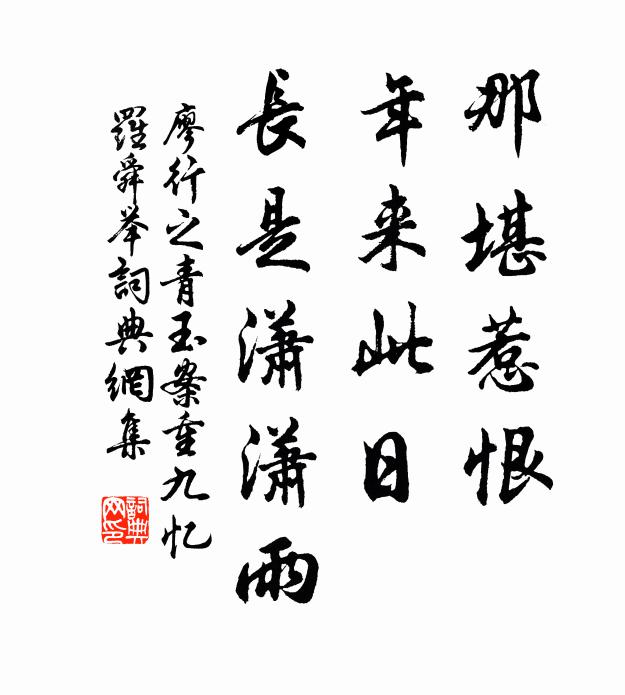 那堪惹恨
年来此日
長是瀟瀟雨
廖行之青玉案重九忆
羅舜举詞典網集
詞典
网印